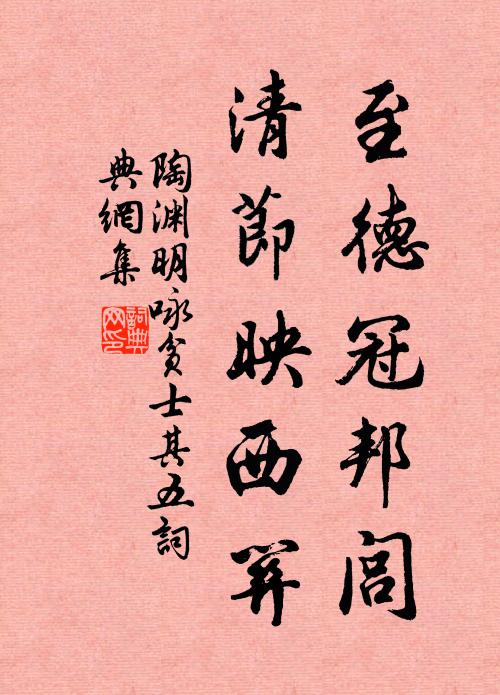 至德冠邦閭
清節映西關
陶渊明咏貧士其五詞
典網集
詞典
网印